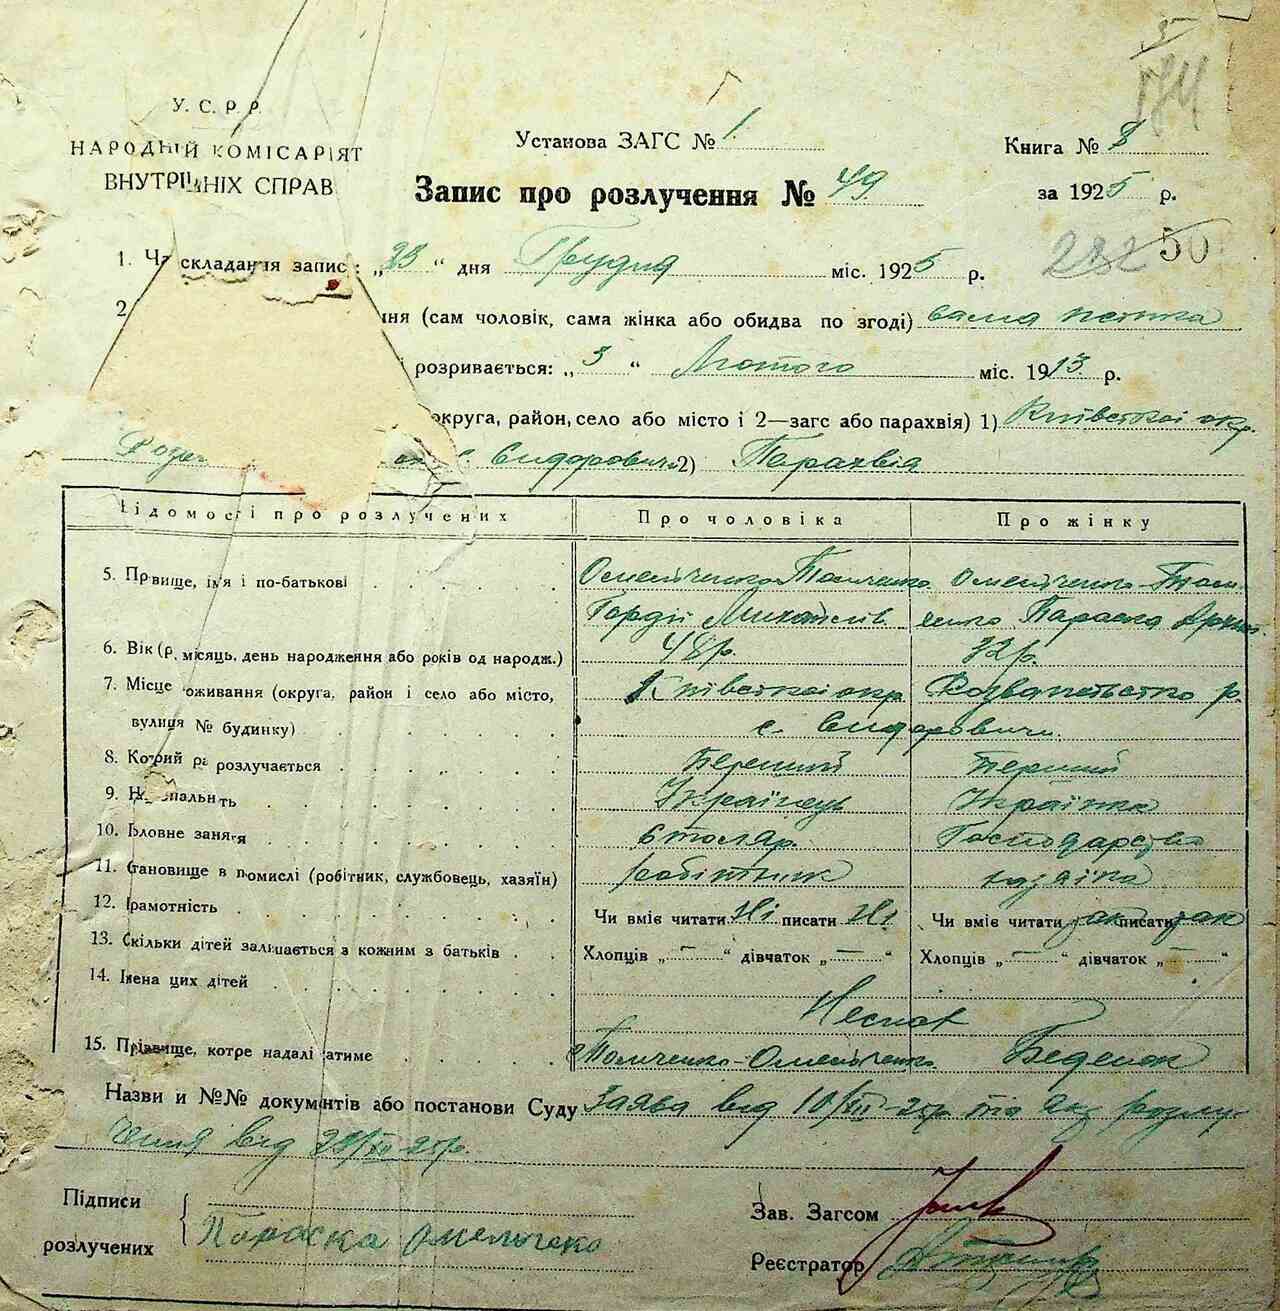 У. С. Р. Р.
НАРОДНІЙ КОМІСАРІЯТ
ВНУТРІШНІХ СПРАВ
Установа ЗАГС № 1
Книга № 8
Запис про розлучення № 49
за 1925 р.
50
1. Ча складання запис : „23“ дня Грудня міс. 1925 р.
2 ння (сам чоловік, сама жінка або обидва по згоді) сама жінка
розривається: „3“ Лютого міс. 1913 р.
округа, район, село або місто і 2—загс або парахвія) 1) Київської окр.
Розв с. Сидоровичі 2) Парахвія
ідомості про розлучених
Про чоловіка
Про жінку
5. Првище, ім'я і по-батькові
Омельченко-Томченко Омельченко-Том-
Гордій Михайлів ченко Параска
6. Вік (р, місяць, день народження або років од народж.) 48 р. 32 р.
7. Місце оживання (округа, район і село або місто, Київської окр. Розважівського р.
вулиця № будинку) с. Сидоровичи.
8. Котрий ра розлучається Перший Перший
9. Н нальнить Українець Українка
10. Головне заняття Столяр. Господарство
11. Становище в помислі (робітник, службовець, хазяїн) робітник хазяйка
12. Грамотність Чи вміє читати Ні писати Ні Чи вміє читати так писати так
13. Скільки дітей залишається з кожним з батьків Хлопців „—“ дівчаток „—“ Хлопців „—“ дівчаток „—“
14. Імена цих дітей
Немає
15. Прізвище, котре надалі матиме Томченко-Омельченко. Беденок
Назви и №№ документів або постанови Суду Заява від 10/XII-25р. та акт розлу-
чення від 23/XII-25р.
Підписи
розлучених
Параска Омельченко
Зав. Загсом
Реєстратор